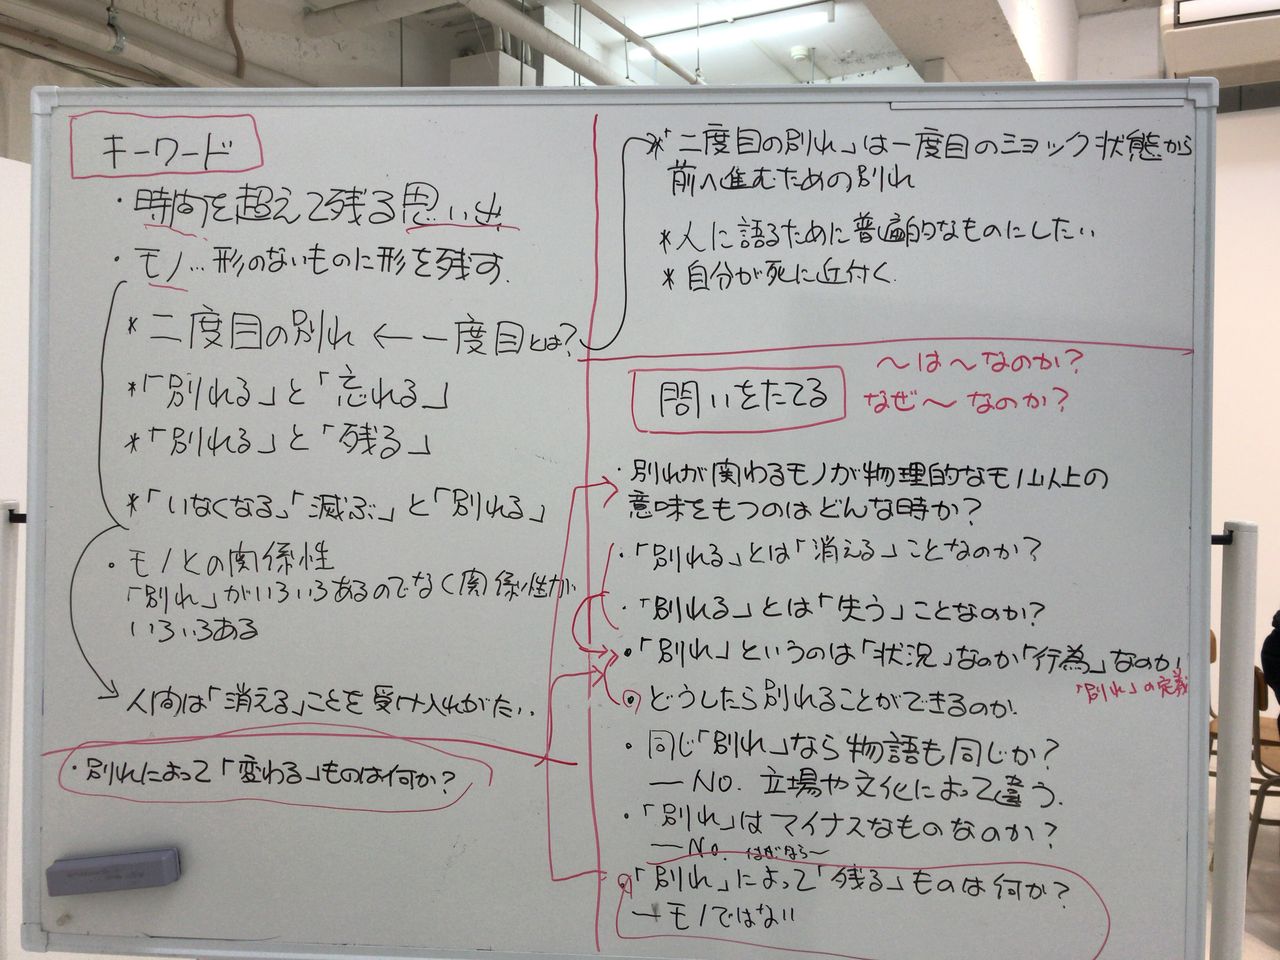 キーワード
・時間を超えて残る思い出
・モノ…形のないものに形を残す.
*二度目の別れ ← 一度目とは?
*「別れる」と「忘れる」
*「別れる」と「残る」
*「いなくなる」「滅ぶ」と「別れる」
・モノとの関係性
「別れ」がいろいろあるのでなく関係性が
いろいろある
人間は「消える」ことを受け入れがたい.
・別れによって「変わる」ものは何か?
*「二度目の別れ」は一度目のショック状態から
前へ進むための別れ
*人に語るために普遍的なものにしたい
*自分が死に近付く.
〜は〜なのか?
なぜ〜なのか?
問いをたてる
・別れが関わるモノが物理的なモノ以上の
意味をもつのはどんな時か?
・「別れる」とは「消える」ことなのか?
・「別れる」とは「失う」ことなのか?
・「別れ」というのは「状況」なのか「行為」なのか
「別れ」の定義
・どうしたら別れることができるのか.
・同じ「別れ」なら物語も同じか?
―NO. 立場や文化によって違う.
・「別れ」はマイナスなものなのか?
―No.
・「別れ」によって「残る」ものは何か?
―モノではない